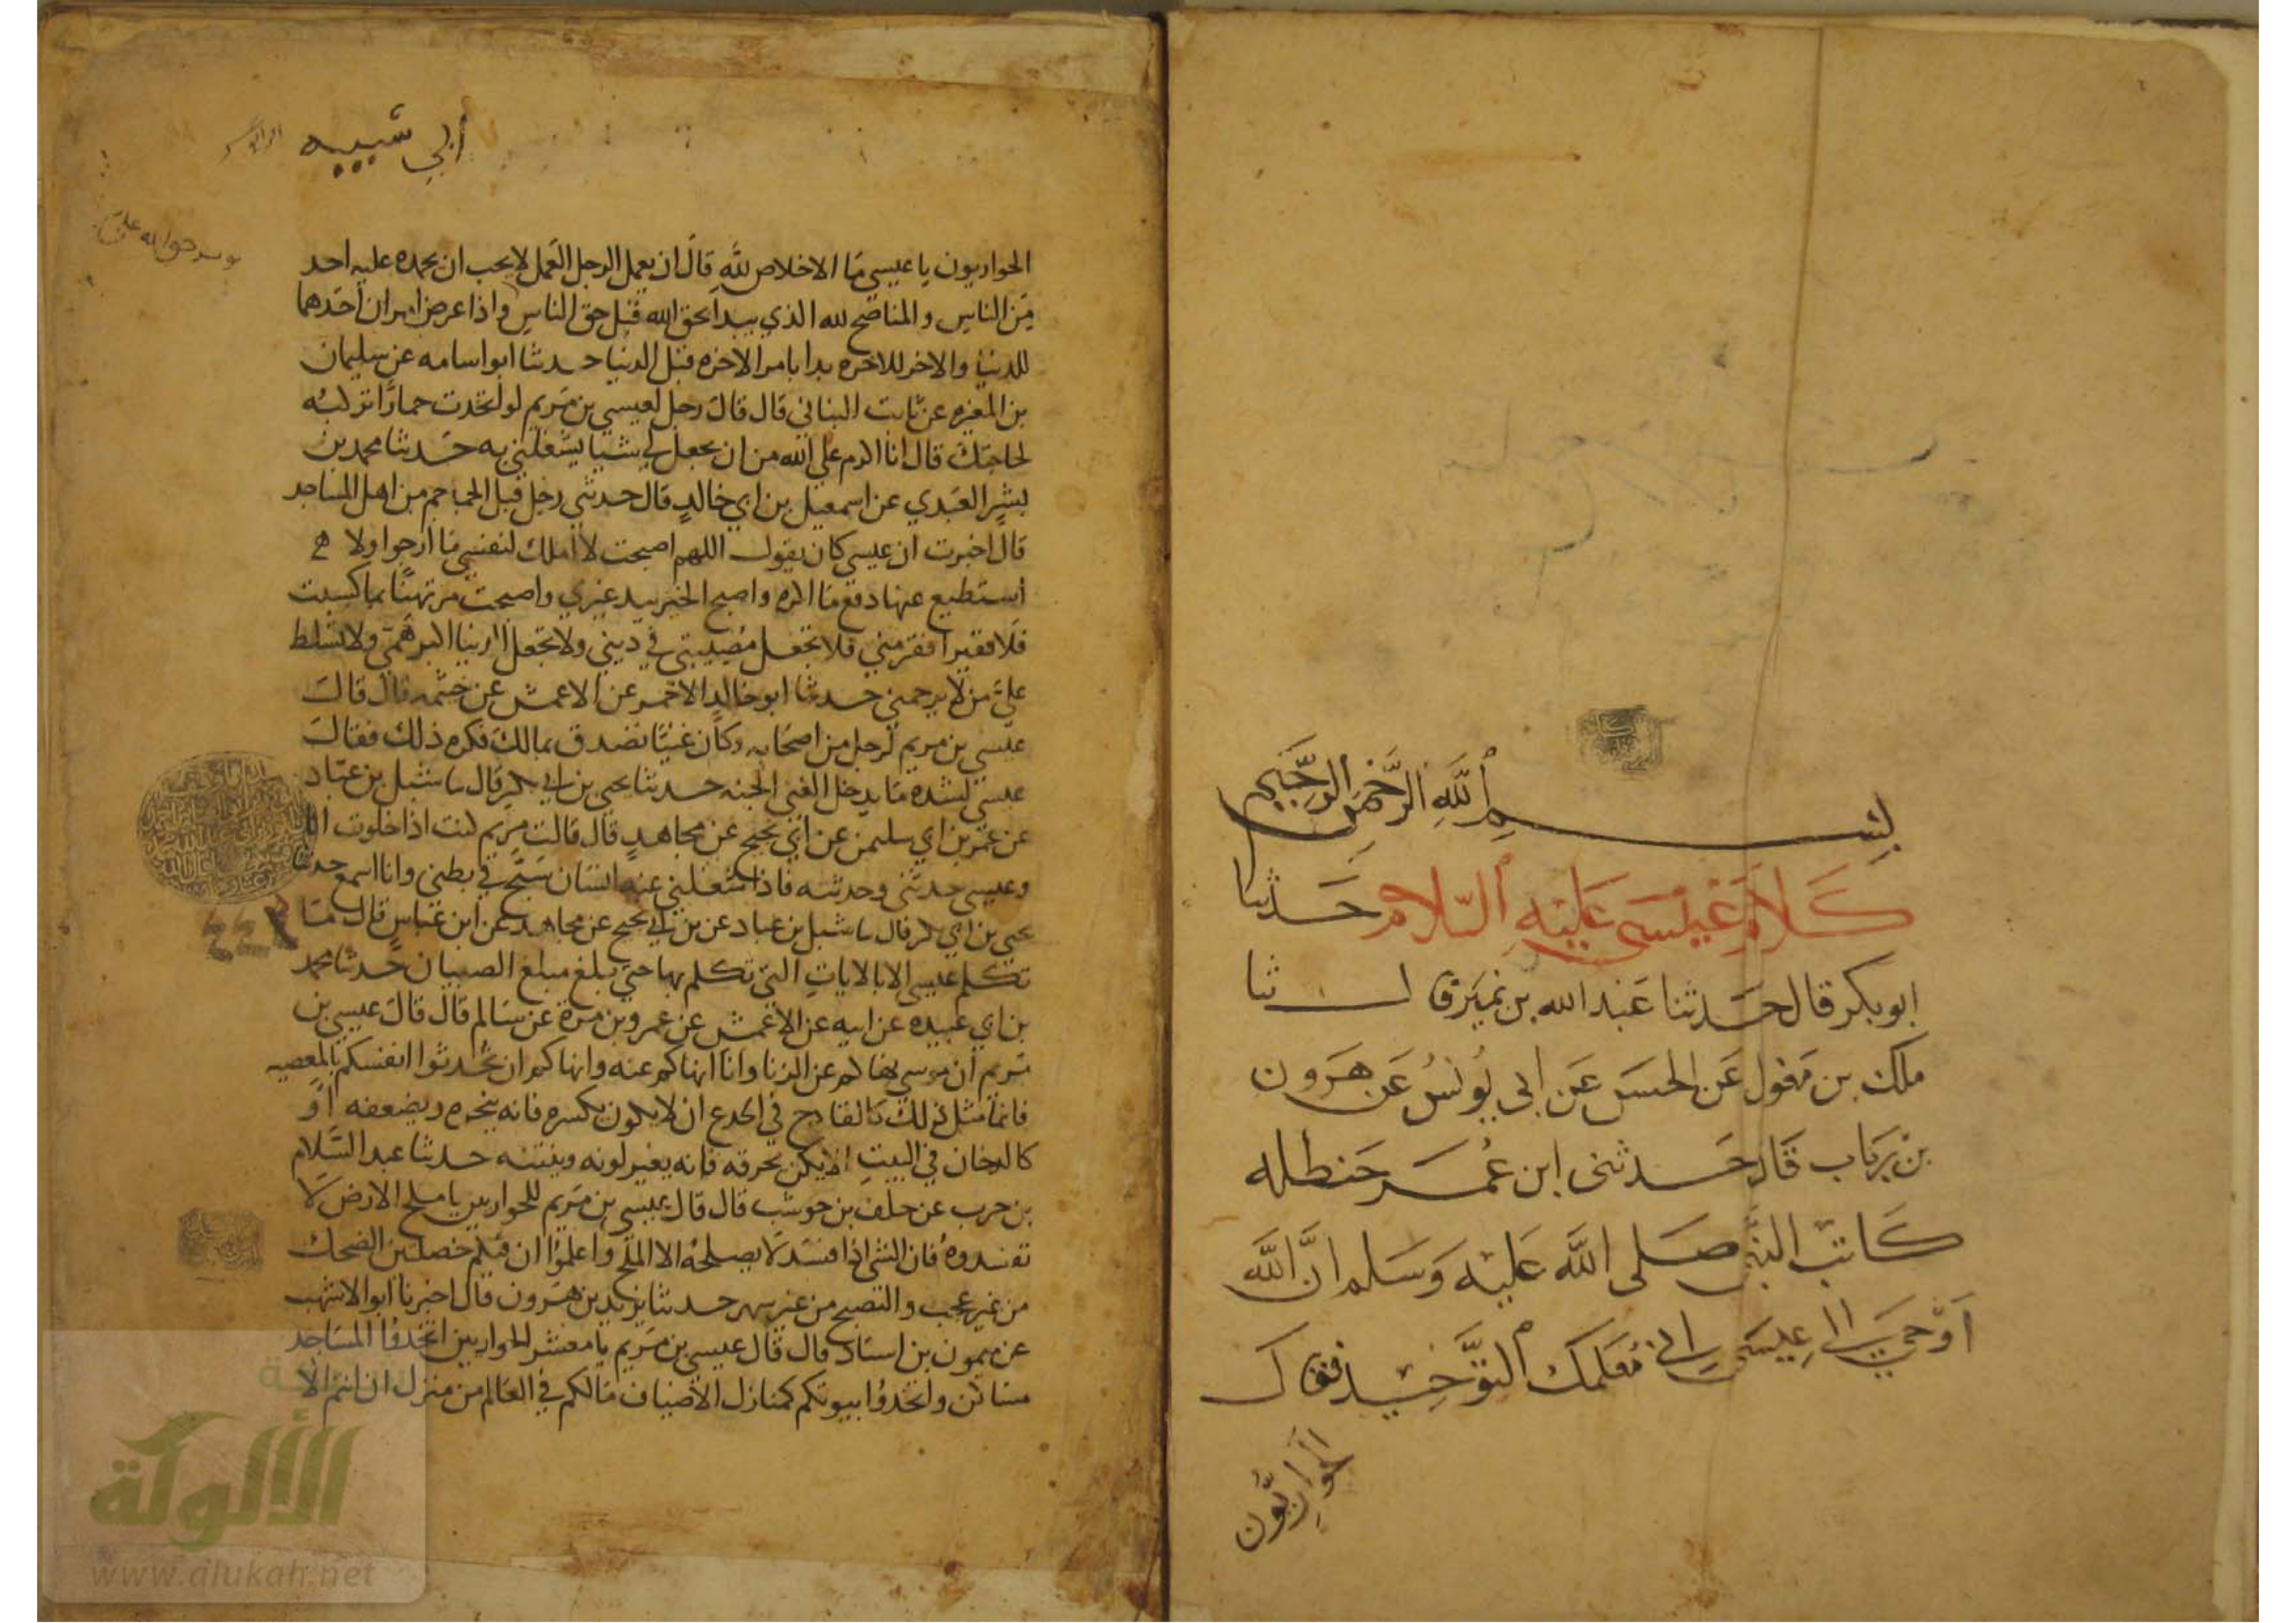 بسم الله الرحمن الرحيم
كلام عيسى عليه السلام حدثنا
ابو بكر قال حدثنا عبد الله بن نمير قال ثنا
ملك بن مغول عن الحسن عن ابي يونس عن هرون
بن رياب قال حدثني ابن عمر حنطله
كاتب النبي صلى الله عليه وسلم ان الله
اوحى الى عيسى اني معلمك التوحيد فقال
الحواريون
أبي شيبه
الحواريون يا عيسى ما الاخلاص لله قال ان يعمل الرجل العمل لا يحب ان يحمده عليه احد
من الناس والمناصح لله الذي يبدا بحق الله قبل حق الناس واذا عرض امران احدهما
للدنيا والاخر للاخره بدا بامر الاخره قبل الدنيا حدثنا ابو اسامه عن سليمان
بن المغيره عن ثابت البناني قال قال رجل لعيسى بن مريم لو اتخذت حمارا تركبه
لحاجتك قال انا اكرم على الله من ان يجعل لي شيا يشغلني به حدثنا محمد بن
بشر العبدي عن اسمعيل بن ابي خالد قال حدثني رجل قبل الجماجم من اهل المساجد
قال اخبرت ان عيسى كان يقول اللهم اصبحت لا املك لنفسي ما ارجوا ولا
استطيع عنها دفع ما اكره واصبح الخير بيد غيري واصبحت مرتهنا بما كسبت
فلا فقير افقر مني فلا تجعل مصيبتي في ديني ولا تجعل الدنيا اكبر همي ولا تسلط
علي من لا يرحمني حدثنا ابو خالد الاحمر عن الاعمش عن خيثمه قال قال
عيسى بن مريم لرجل من اصحابه وكان غنيا تصدق بمالك فكره ذلك فقال
عيسى لشده ما يدخل الغني الجنه حدثنا يحيى بن ابي بكر قال نا شبل بن عباد
عن عمر بن ابي سليمن عن ابي نجيح عن مجاهد قال قالت مريم كنت اذا خلوت انا
وعيسى حدثني وحدثته فاذا شغلني عنه انسان سبح في بطني وانا اسمع حدثنا
يحيى بن ابي بكر قال نا شبل بن عباد عن بن ابي نجيح عن مجاهد عن ابن عباس قال ما
تكلم عيسى الا بالايات التي تكلم بها حتى بلغ مبلغ الصبيان حدثنا محمد
بن ابي عبيده عن ابيه عن الاعمش عن عمرو بن مرة عن سالم قال قال عيسى بن
مريم ان موسى نهاكم عن الزنا وانا انهاكم عنه وانهاكم ان تحدثوا انفسكم بالمعصيه
فانما مثل ذلك كالقادح في الجدع ان لا يكون يكسره فانه ينخره ويضعفه او
كالدخان في البيت الا يكن يحرقه فانه يغير لونه وينتنه حدثنا عبد السلام
بن حرب عن خلف بن حوشب قال قال عيسى بن مريم للحواريين يا ملح الارض لا
تفسدوه فان الشي اذا فسد لا يصلحه الا الملح واعلموا ان فيكم خصلتين الضحك
من غير عجب والتصبح من غير سهر حدثنا يزيد بن هرون قال اخبرنا ابو الاشهب
عن ميمون بن استاد قال قال عيسى بن مريم يا معشر الحواريين اتخذوا المساجد
مساكن واتخدوا بيوتكم كمنازل الاضياف مالكم في العالم من منزل ان انتم الا
الألوكة
www.alukah.net